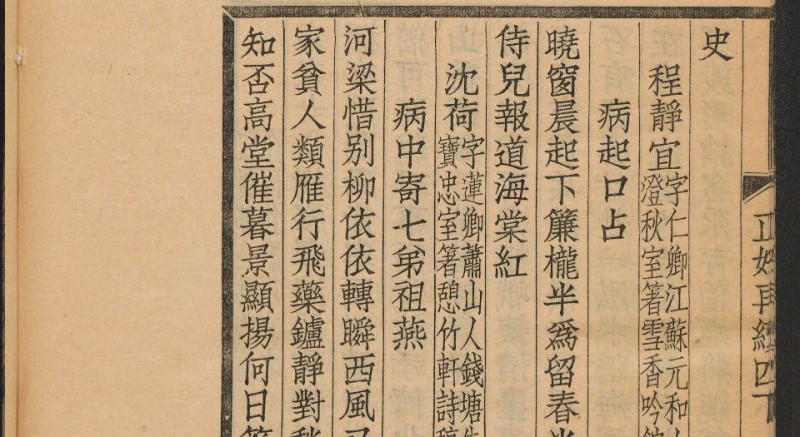 正始再續四
史
程靜宜字仁卿江蘇元和
澄秋室箸雪香吟
病起口占
曉窗晨起下簾櫳半爲留春
侍兒報道海棠紅
沈荷字蓮卿蕭山人錢塘
寶忠室箸憩竹軒詩
病中寄七弟祖燕
河梁惜別柳依依轉瞬西風
家貧人類雁行飛藥鑪靜對
知否高堂催暮景顯揚何日